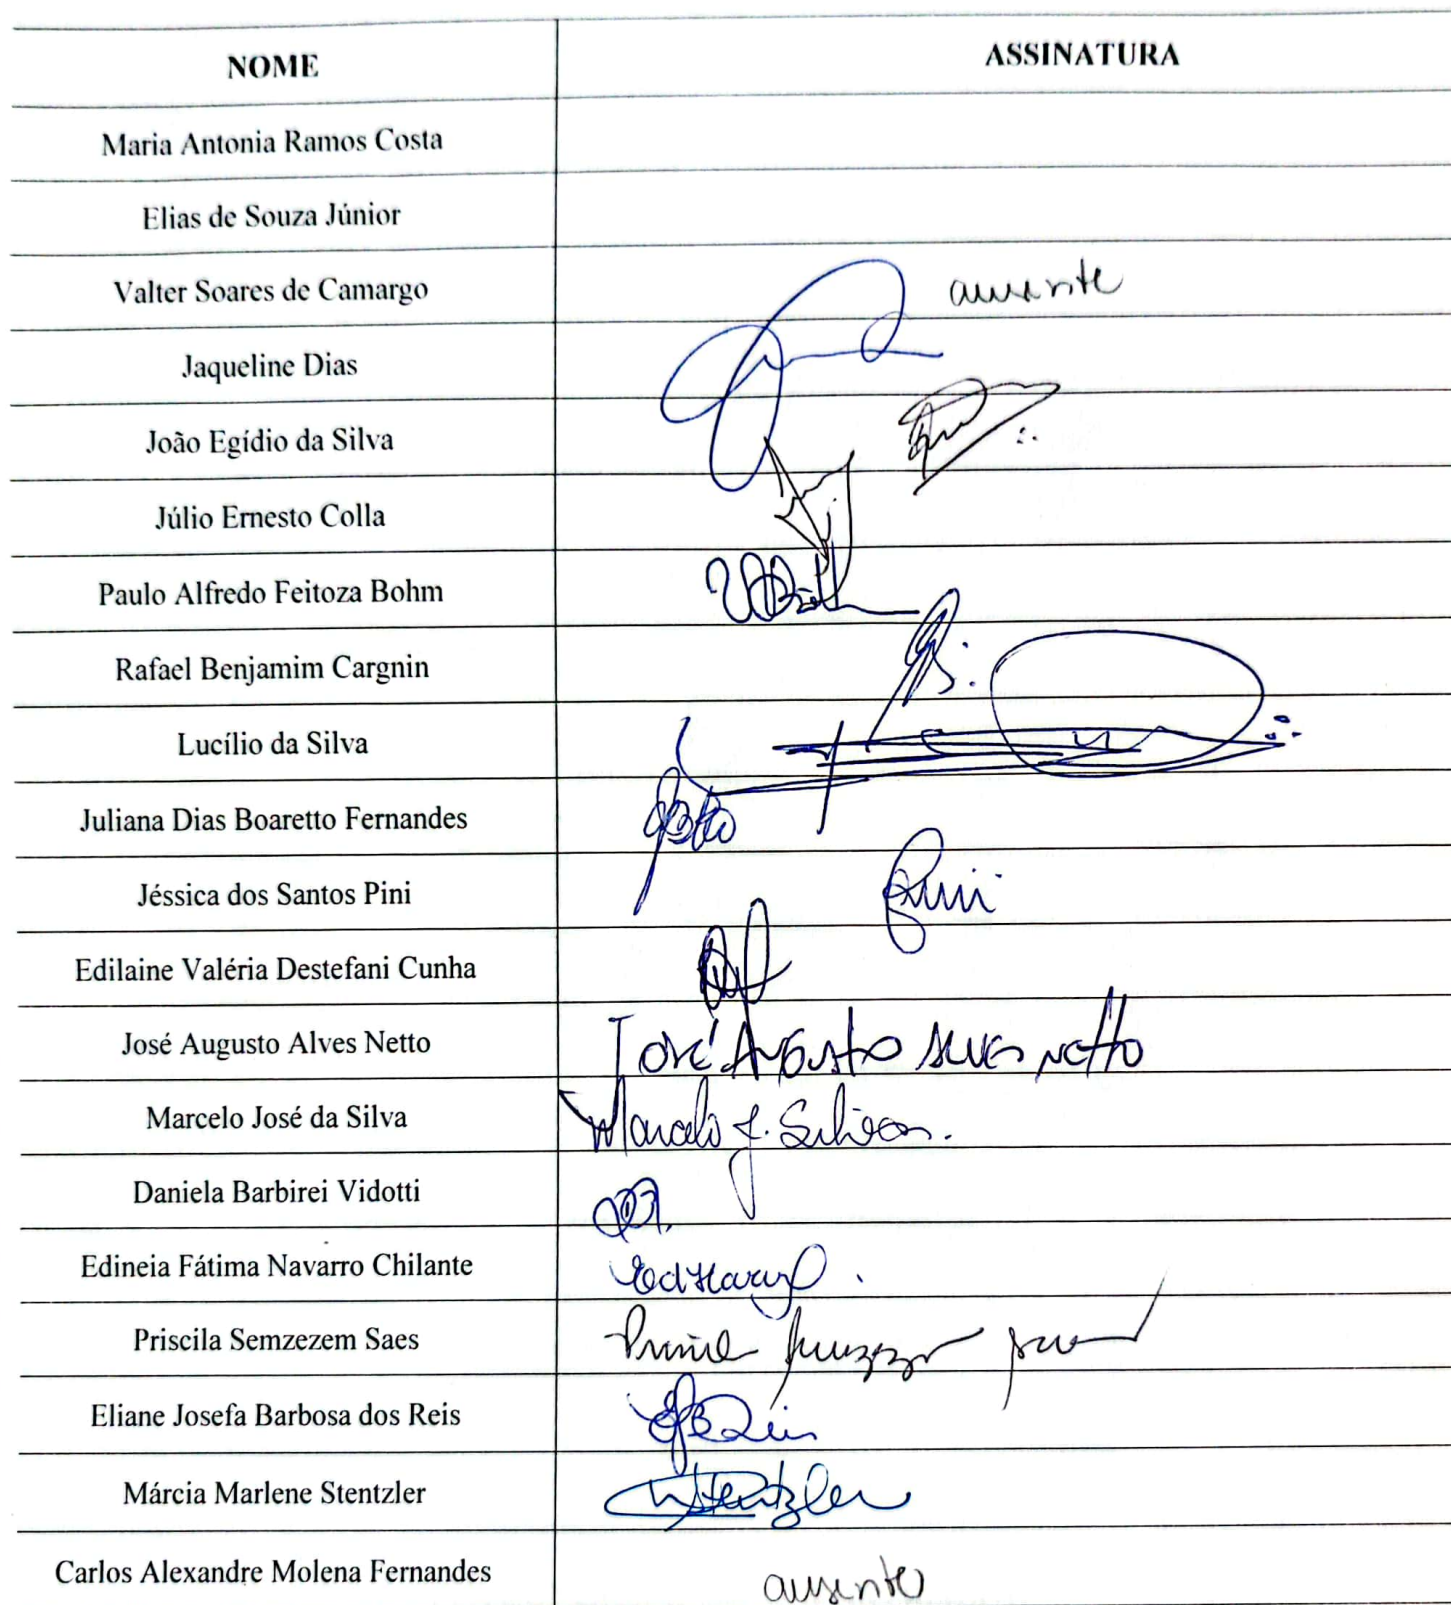 NOME ASSINATURA
Maria Antonia Ramos Costa
Elias de Souza Júnior
Valter Soares de Camargo ausente
Jaqueline Dias
João Egídio da Silva
Júlio Ernesto Colla
Paulo Alfredo Feitoza Bohm
Rafael Benjamim Cargnin
Lucílio da Silva
Juliana Dias Boaretto Fernandes
Jéssica dos Santos Pini
Edilaine Valéria Destefani Cunha
José Augusto Alves Netto José Augusto Alves Netto
Marcelo José da Silva Marcelo J. Silva.
Daniela Barbirei Vidotti
Edineia Fátima Navarro Chilante
Priscila Semzezem Saes
Eliane Josefa Barbosa dos Reis
Márcia Marlene Stentzler Stentzler
Carlos Alexandre Molena Fernandes ausente